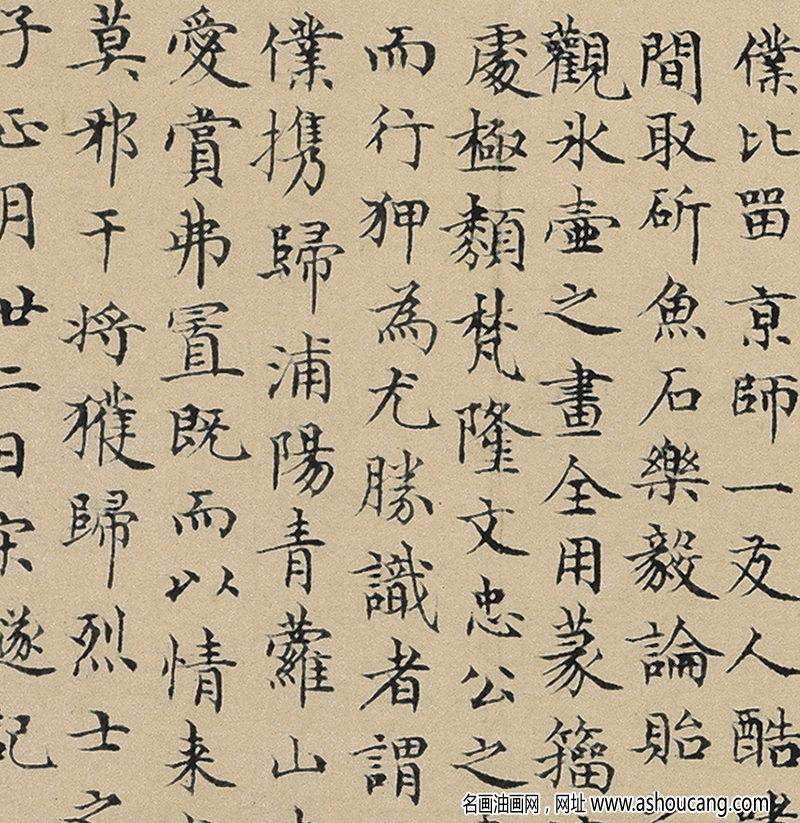 僕比留京師一友人酷
間取斫魚石樂毅論貽
觀氷壺之畫全用篆籀
處極類梵隆文忠公之
而行狎為尤勝識者謂
僕携歸浦陽青蘿山
愛賞弗置既而以情来
莫邪干将獲歸烈士之
子正月廿二日宋璲記
名画油画网，网址 www.ashoucang.com